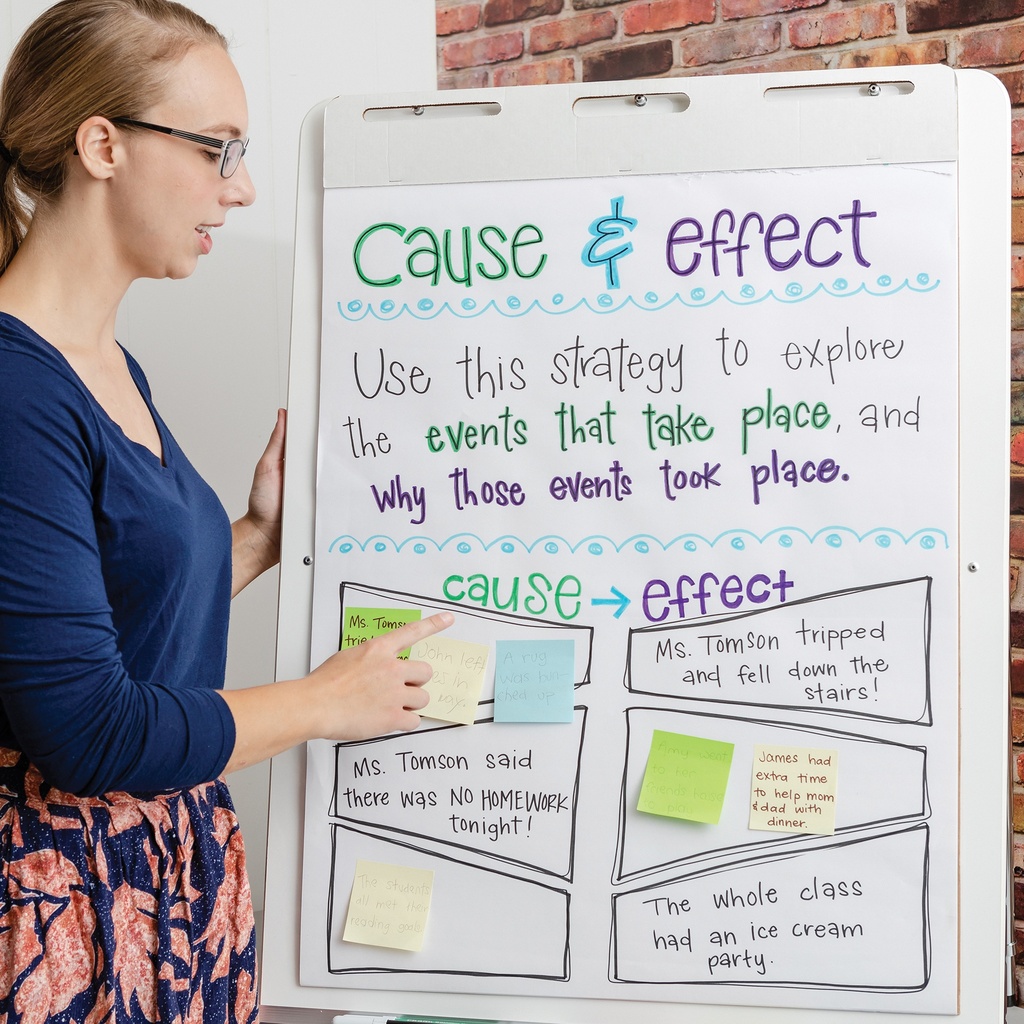 Cause & effect
Use this strategy to explore
the events that take place, and
why those events took place.
cause → effect
Ms. Toms
John left
A rug
was bun
ched up
Ms. Tomson tripped
and fell down the
stairs!
Ms. Tomson said
there was NO HOMEWORK
tonight!
James had
extra time
to help mom
& dad with
dinner.
The students
all met their
reading goals
The whole class
had an ice cream
party.